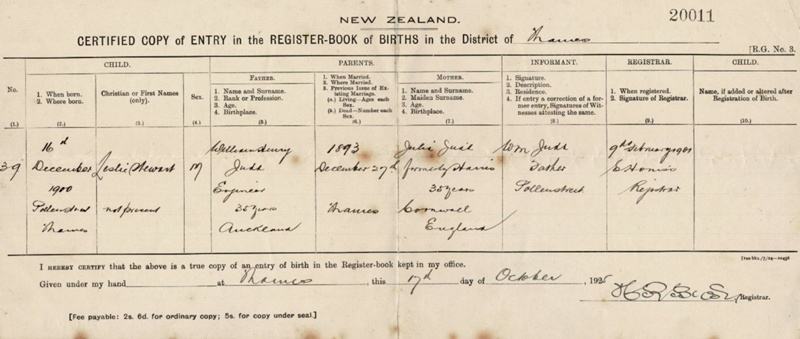 NEW ZEALAND.
20011
CERTIFIED COPY of ENTRY in the REGISTER-BOOK of BIRTHS in the District of Thames
[R.G. No. 3.
No.
(1.)
CHILD.
1. When born.
2. Where born.
(2.)
Christian or First Names
(only).
(3.)
Sex.
(4.)
PARENTS.
FATHER.
1. Name and Surname.
2. Rank or Profession.
3. Age.
4. Birthplace.
(5.)
1. When Married.
2. Where Married.
3. Previous Issue of Ex-
isting Marriage.
(a.) Living—Ages each
Sex.
(b.) Dead—Number each
Sex.
(6.)
MOTHER.
1. Name and Surname.
2. Maiden Surname.
3. Age.
4. Birthplace.
(7.)
INFORMANT.
1. Signature.
2. Description.
3. Residence.
4. If entry a correction of a for-
mer entry, Signatures of Wit-
nesses attesting the same.
(8.)
REGISTRAR.
1. When registered.
2. Signature of Registrar.
(9.)
CHILD.
Name, if added or altered after
Registration of Birth.
(10.)
39
16d
December
1900
Pollen Street
Thames
Leslie Stewart
not present
M
William Henry
Judd
Engineer
35 years
Auckland
1893
December 27th
Thames
Julia Judd
formerly Harris
35 years
Cornwall
England
Wm Judd
Father
Pollen Street
9th February 1901
Registrar
I HEREBY CERTIFY that the above is a true copy of an entry of birth in the Register-book kept in my office.
Given under my hand at Thames, this 17d day of October, 1925
Registrar.
[Fee payable: 2s. 6d. for ordinary copy; 5s. for copy under seal.]